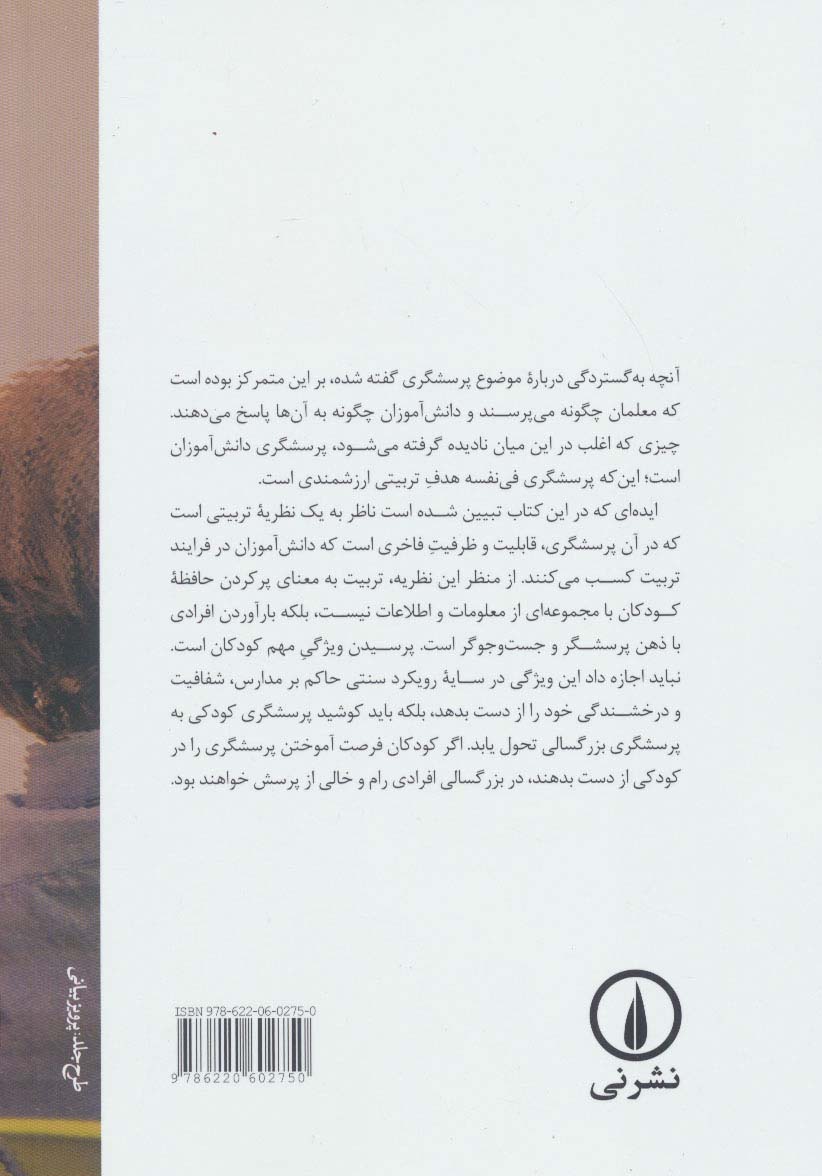 آنچه به‌گستردگی دربارهٔ موضوع پرسشگری گفته شده، بر این متمرکز بوده است
که معلمان چگونه می‌پرسند و دانش‌آموزان چگونه به آن‌ها پاسخ می‌دهند.
چیزی که اغلب در این میان نادیده گرفته می‌شود، پرسشگری دانش‌آموزان
است؛ این‌که پرسشگری فی‌نفسه هدفِ تربیتی ارزشمندی است.
ایده‌ای که در این کتاب تبیین شده است ناظر به یک نظریهٔ تربیتی است
که در آن پرسشگری، قابلیت و ظرفیتِ فاخری است که دانش‌آموزان در فرایند
تربیت کسب می‌کنند. از منظر این نظریه، تربیت به معنای پرکردن حافظهٔ
کودکان با مجموعه‌ای از معلومات و اطلاعات نیست، بلکه بارآوردن افرادی
با ذهن پرسشگر و جست‌وجوگر است. پرسیدن ویژگیِ مهم کودکان است.
نباید اجازه داد این ویژگی در سایهٔ رویکرد سنتی حاکم بر مدارس، شفافیت
و درخشندگی خود را از دست بدهد، بلکه باید کوشید پرسشگری کودکی به
پرسشگری بزرگسالی تحول یابد. اگر کودکان فرصت آموختن پرسشگری را در
کودکی از دست بدهند، در بزرگسالی افرادی رام و خالی از پرسش خواهند بود.
طرح جلد: پرویز بیانی
ISBN 978-622-06-0275-0
9 786220 602750
نشرنی